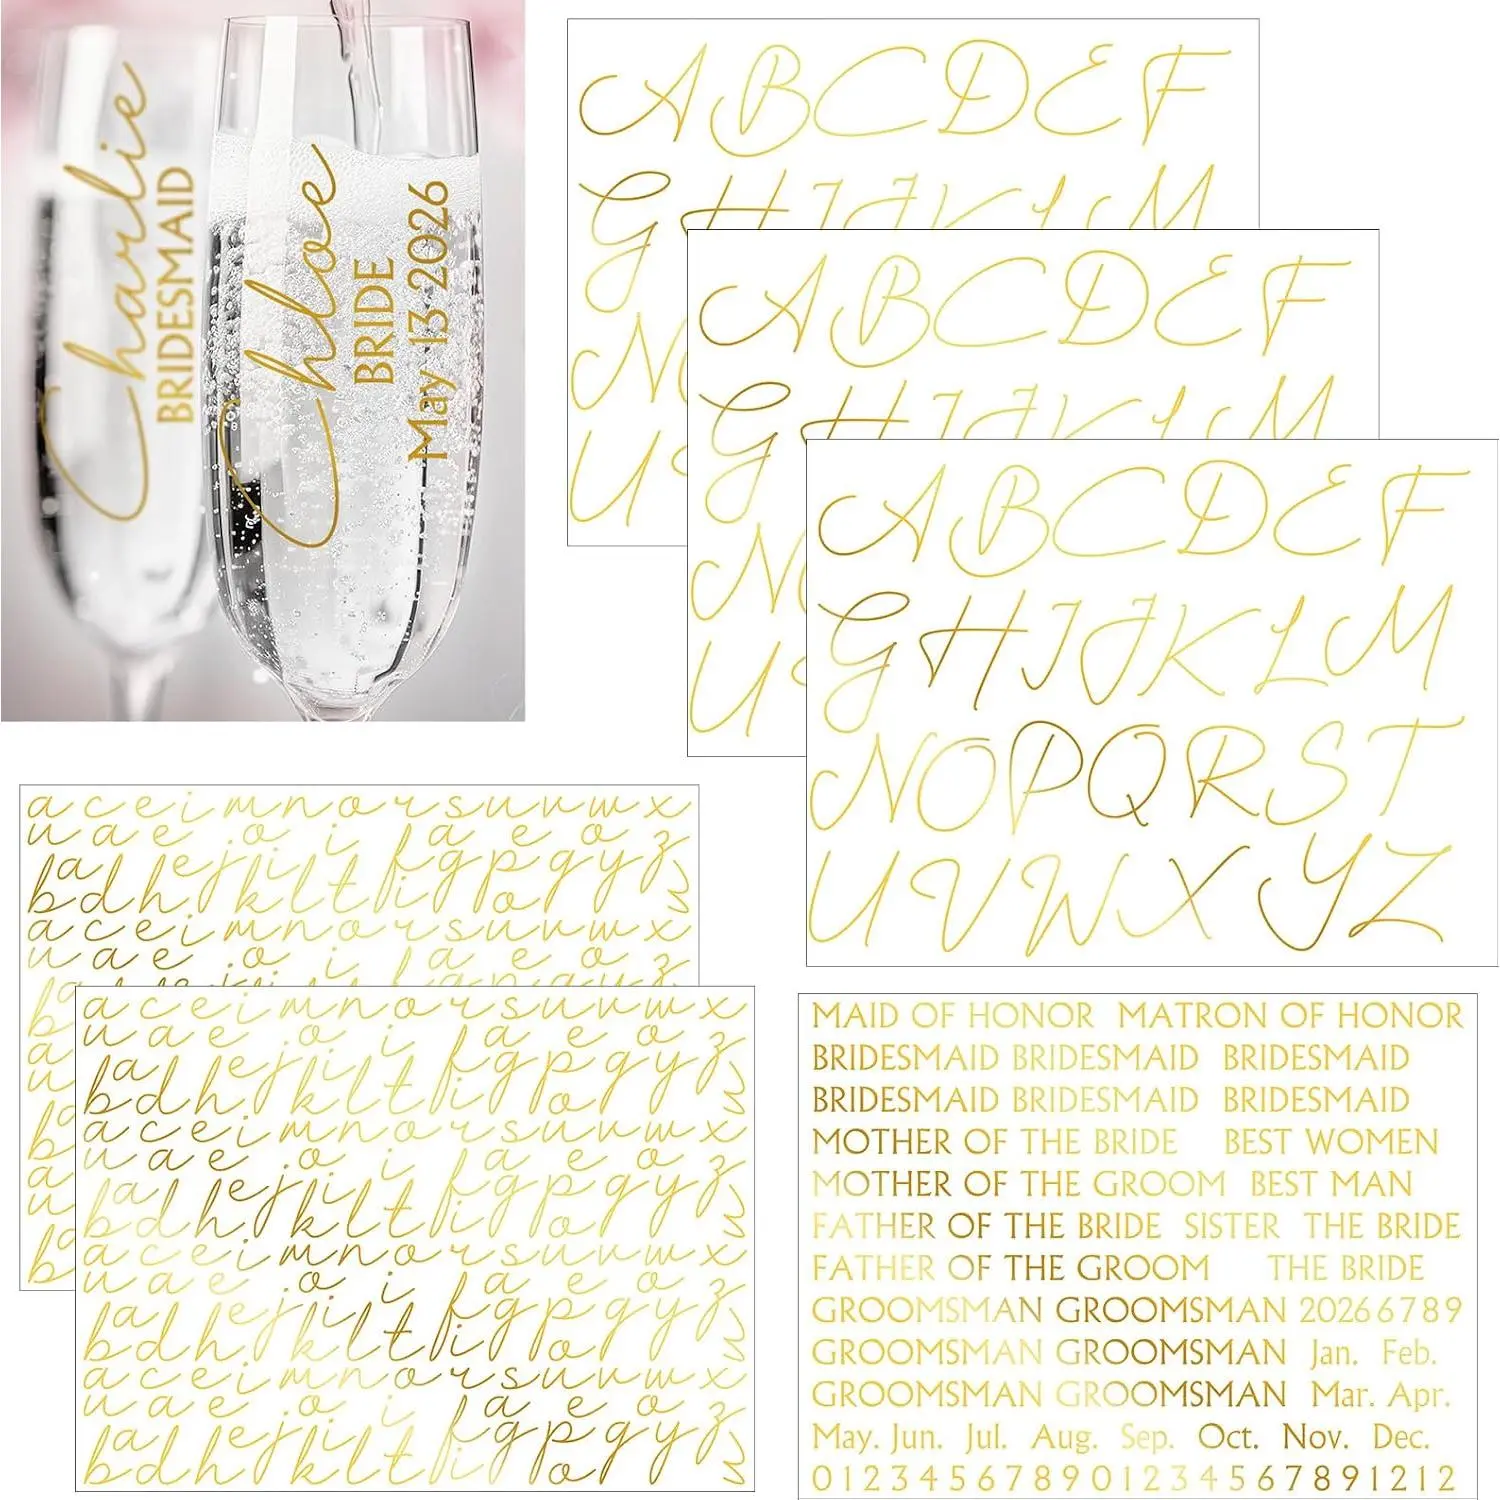 Charlie
BRIDESMAID
Chloe
BRIDE
May 13 2026
A B C D E F
G H I J K L M
N
U
A B C D E F
G H I J K L M
N
U
A B C D E F
G H I J K L M
N O P Q R S T
U V W X Y Z
a c e i m n o r s u v w x
u a e o i a e o z
a e j i f g p q y
b d h k l t i o
a c e i m n o r s u v w x
u a e o i a e o z
a c e i m n o r s u v w x
u a e o i a e o z
a e j i f g p q y
b d h k l t i o
a c e i m n o r s u v w x
u a e o i a e o z
a e j i f g p q y
b d h k l t i o
a c e i m n o r s u v w x
u a e o i a e o z
a e j i f g p q y
b d h k l t i o
a c e i m n o r s u v w x
u a e o i a e o z
a e j i f g p q y
b d h k l t i o
MAID OF HONOR MATRON OF HONOR
BRIDESMAID BRIDESMAID BRIDESMAID
BRIDESMAID BRIDESMAID BRIDESMAID
MOTHER OF THE BRIDE BEST WOMEN
MOTHER OF THE GROOM BEST MAN
FATHER OF THE BRIDE SISTER THE BRIDE
FATHER OF THE GROOM THE BRIDE
GROOMSMAN GROOMSMAN 2026 6 7 8 9
GROOMSMAN GROOMSMAN Jan. Feb.
GROOMSMAN GROOMSMAN Mar. Apr.
May. Jun. Jul. Aug. Sep. Oct. Nov. Dec.
0 1 2 3 4 5 6 7 8 9 0 1 2 3 4 5 6 7 8 9 1 2 1 2